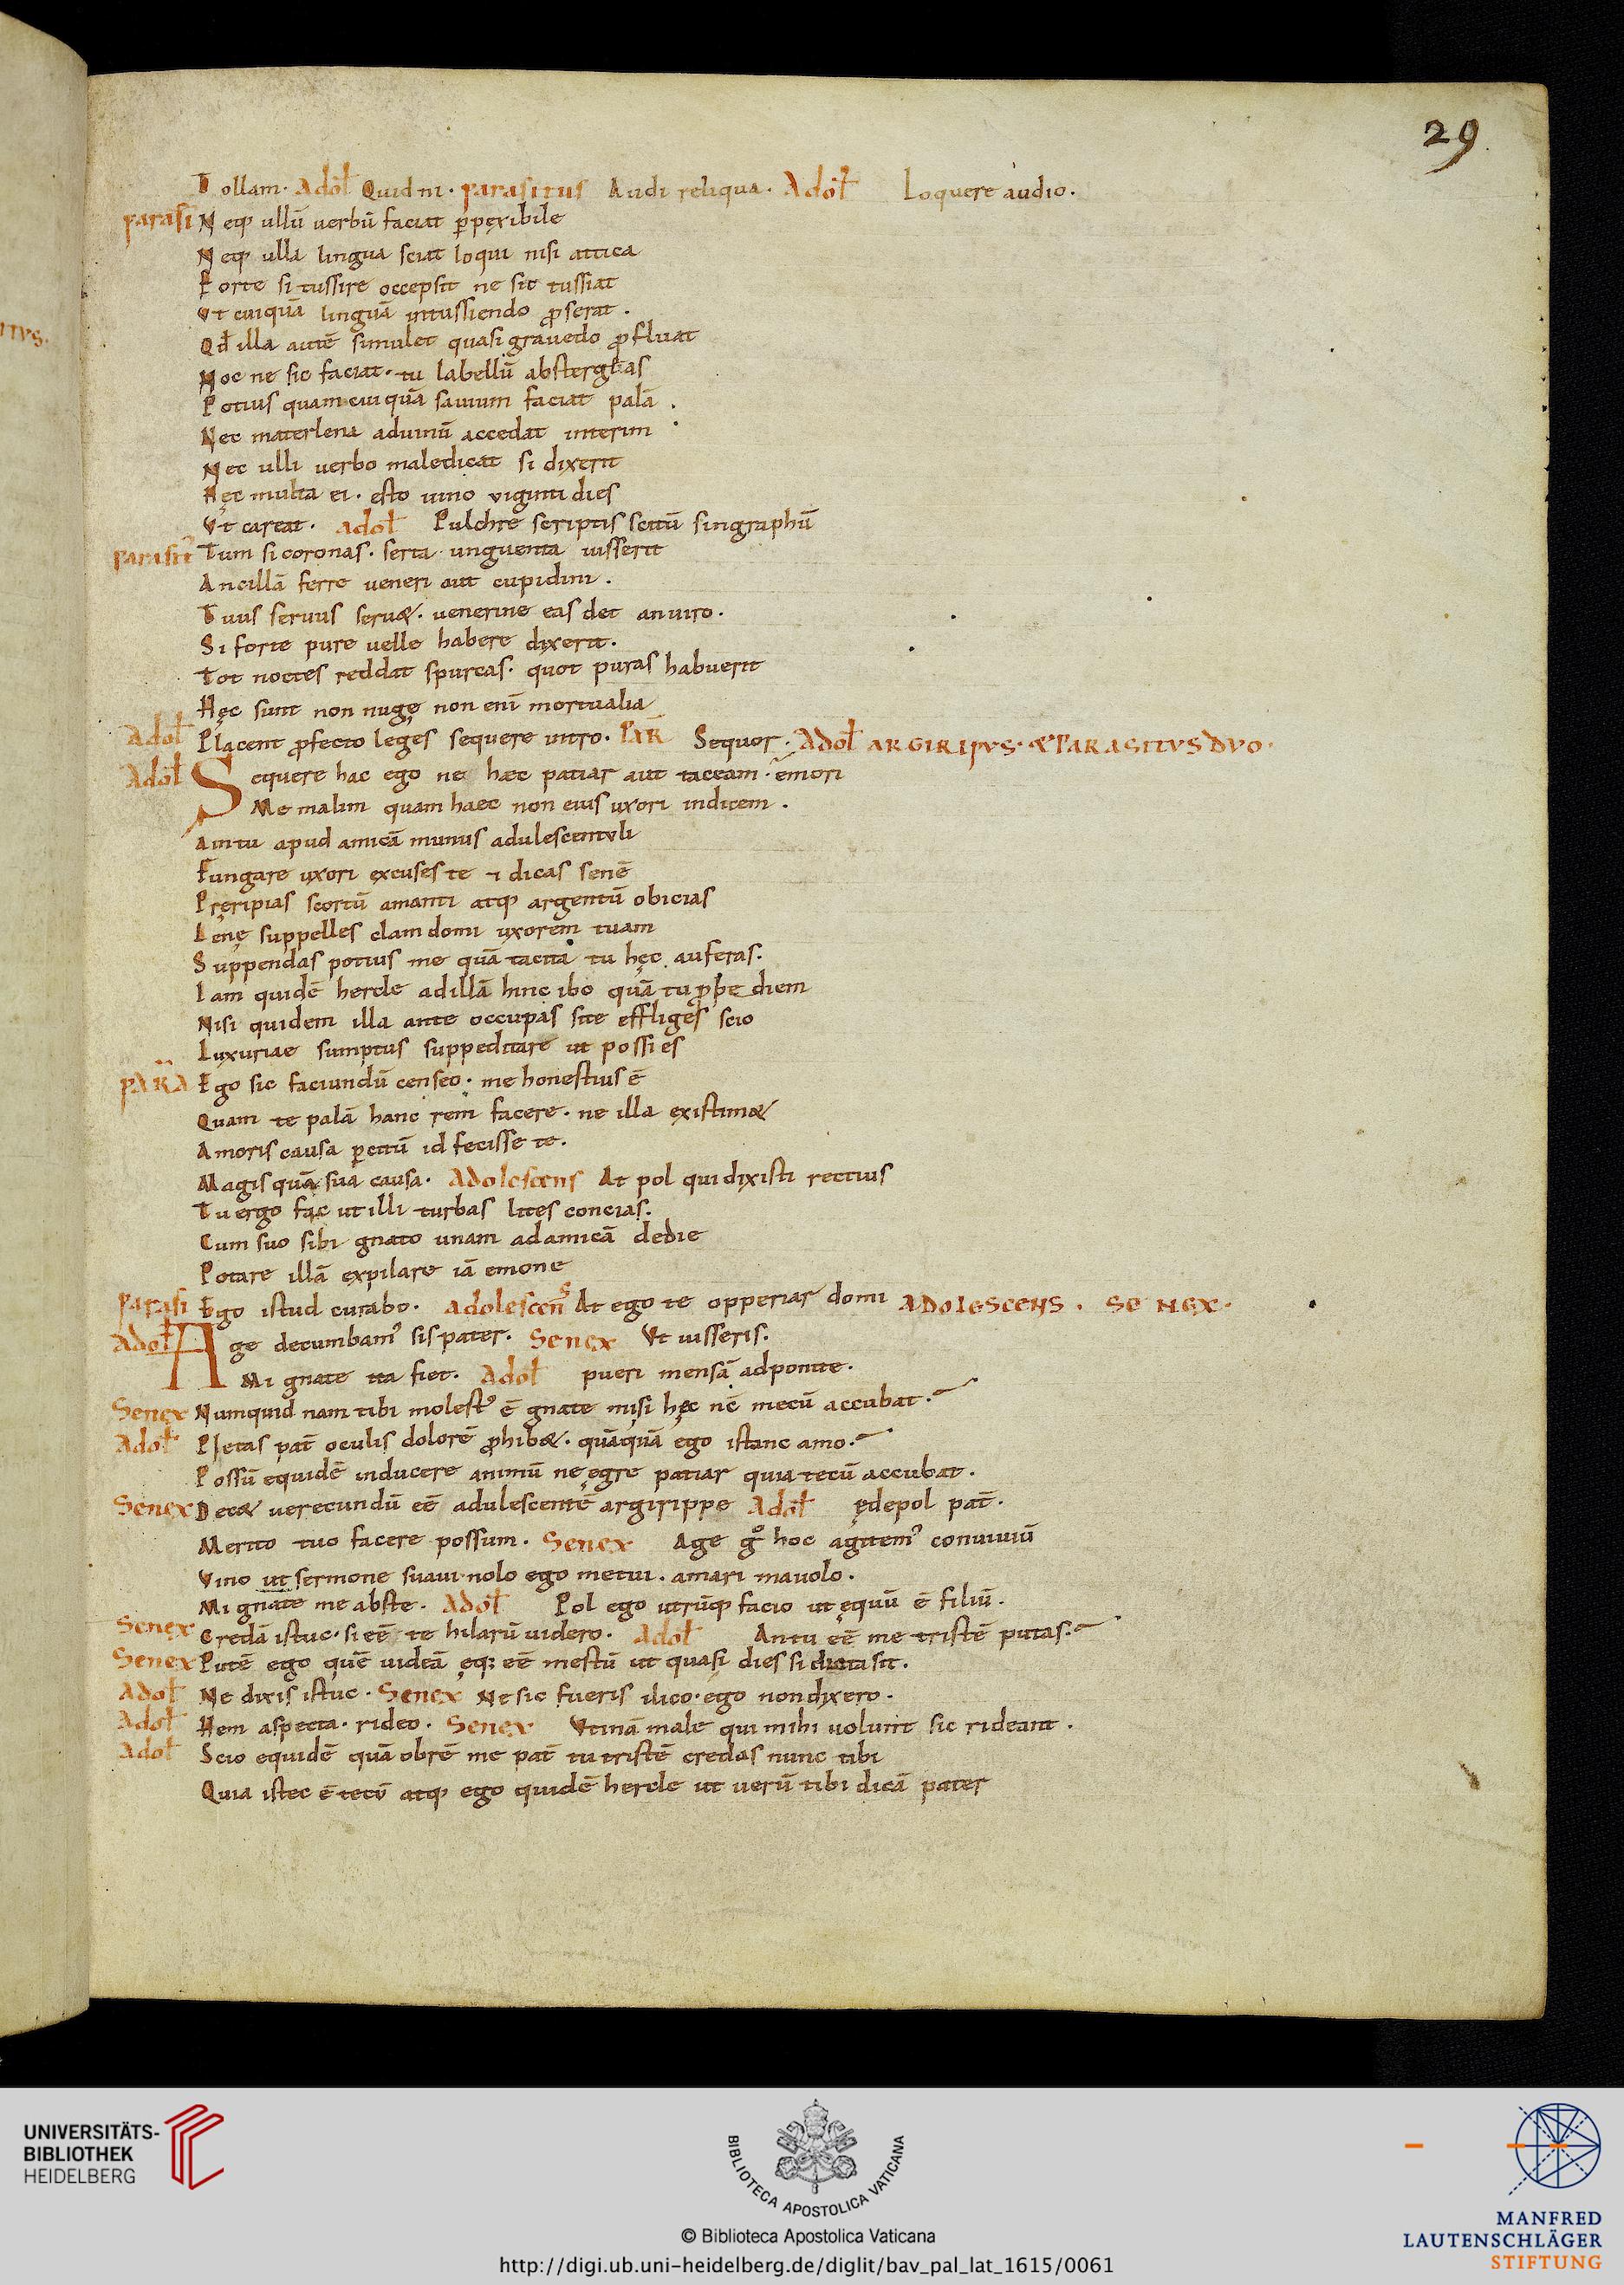 29
Tollam. Adol̄ Quid ni. parasitus Audi reliqua. Adol̄ Loquere audio.
parasi Neq; ullū uerbū faciat ꝑpęxibile
Neq; ulla lingua sciat loqui nisi attica
Forte si tussire occepsit ne sic tussiat
Vt cuiquā linguā intussiendo ꝓserat.
Qđ illa autē simulet quasi grauedo ꝓfluat
Hoc ne sic faciat. tu labellū abstergeas
Potius quam cuiquā sauium faciat palā.
Nec mater lena aduinū accedat interim
Nec ulli uerbo maledicat si dixerit
Hęc multa ei. esto uino viginti dies
Vt careat. Adol̄ Pulchre scriptis scitū singraphū
parasit᾿ Tum si coronas. serta unguenta iusserit
Ancillā ferre ueneri aut cupidini.
Tuus seruus seruæ. uenerine eas det an uiro.
Si forte pure uelle habere dixerit.
Tot noctes reddat spurcas. quot puras habuerit
Hęc sunt non nugę non enī mortualia
Adol̄ Placent ꝓfecto leges sequere intro. PAR̄ Sequor. Adol̄ ARGIRIPVS. & PARASITVS DVO.
Adol̄ Sequere hac ego ne hæc patiar aut taceam. emori
Me malim quam haec non eius uxori indicem.
Aintu apud amicā munus adulescentuli
Fungare uxori excuses te ⁊ dicas senē
Pręripias scortū amanti atq; argentū obicias
Lenę suppelles clam domi uxorem tuam
Suppendas potius me quā tacita tu hęc auferas.
Iam quidē hercle ad illā hinc ibo quā tu ꝓpe diem
Nisi quidem illa ante occupas site effliges scio
Luxuriae sumptus suppeditare ut possi es
PARA Ego sic faciundū censeo. me honestius ē
Quam te palā hanc rem facere. ne illa existimæ
Amoris causa ꝑcitū id fecisse te.
Magis quā sua causa. Adolescens At pol qui dixisti rectius
Tu ergo fac ut illi turbas lites concias.
Cum suo sibi gnato unam ad amicā dedie
Potare illā expilare iā emone
Parasi Ego istud curabo. Adolescen᾿ At ego te opperiar domi ADOLESCENS. SENEX.
Adol̄ Age decumbam᾿ sis pater. Senex Vt iusseris.
Mi gnate ita fiet. Adol̄ pueri mensā adponite.
Senex Numquid nam tibi molest᾿ ē gnate mi si hęc nc̄ mecū accubat.
Adol̄ Pietas pat̄ oculis dolorē ꝓhibæ. quāquā ego istanc amo.
Possū equidē inducere animū ne ęgre patiar quia tecū accubat.
Senex Decæ uerecundū eē adulescentē argirippe Adol̄ ędepol pat̄.
Merito tuo facere possum. Senex Age gͦ hoc agitem᾿ conuiuiū
Vino ut sermone suaui. nolo ego metui. amari mauolo.
Mi gnate me abste. Adol̄ Pol ego utrūq; facio ut ęquū ē filiū.
Senex Credā istuc. si eē te hilarū uidero. Adol̄ Antu eē me tristē putas.
Senex Putē ego quē uideā ęq; eē mestū ut quasi dies si dicta sit.
Adol̄ Ne dixis istuc. Senex Ne sic fueris ilico. ego non dixero.
Adol̄ Hem aspecta. rideo. Senex Vtinā male qui mihi uolunt sic rideant.
Adol̄ Scio equidē quā obrē me pat̄ tu tristē credas nunc tibi
Quia istec ē tecū atq; ego quidē hercle ut uerū tibi dicā pater
UNIVERSITÄTS-
BIBLIOTHEK
HEIDELBERG
BIBLIOTECA APOSTOLICA VATICANA
© Biblioteca Apostolica Vaticana
http://digi.ub.uni-heidelberg.de/diglit/bav_pal_lat_1615/0061
MANFRED
LAUTENSCHLÄGER
STIFTUNG